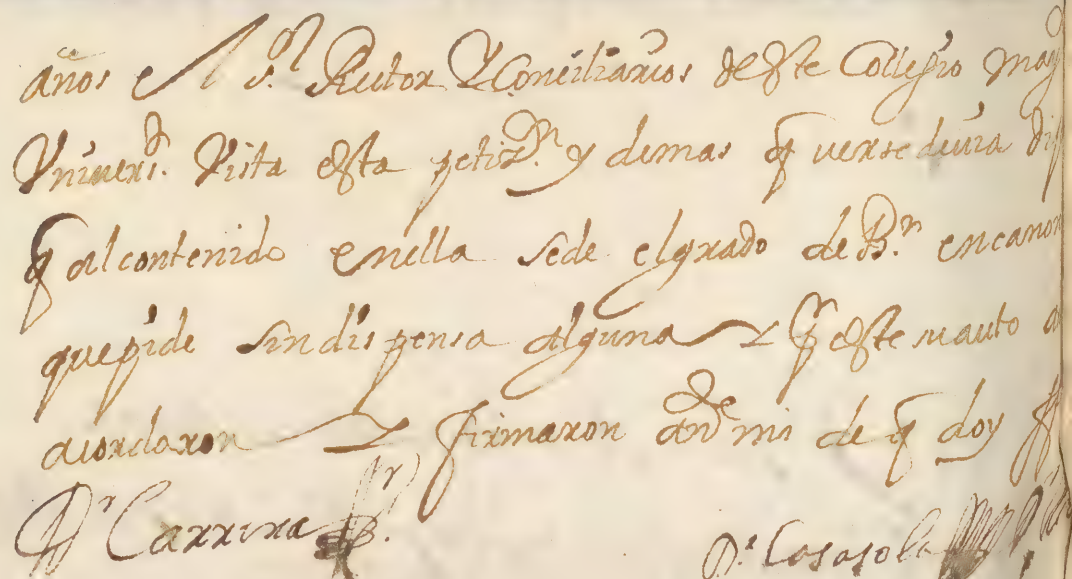 años el s.or Rector Y Conciliarios deste Collegio may
Vniuersi.d Vista esta petiz.on y demas q uerse deuia
q al contenido enella sede elgrado de B.r en canon
quepide sin dispensa alguna Y Pr este suauto
acordaron Y firmaron ante mi de q doy
D.r Carrera
D.r Casasola